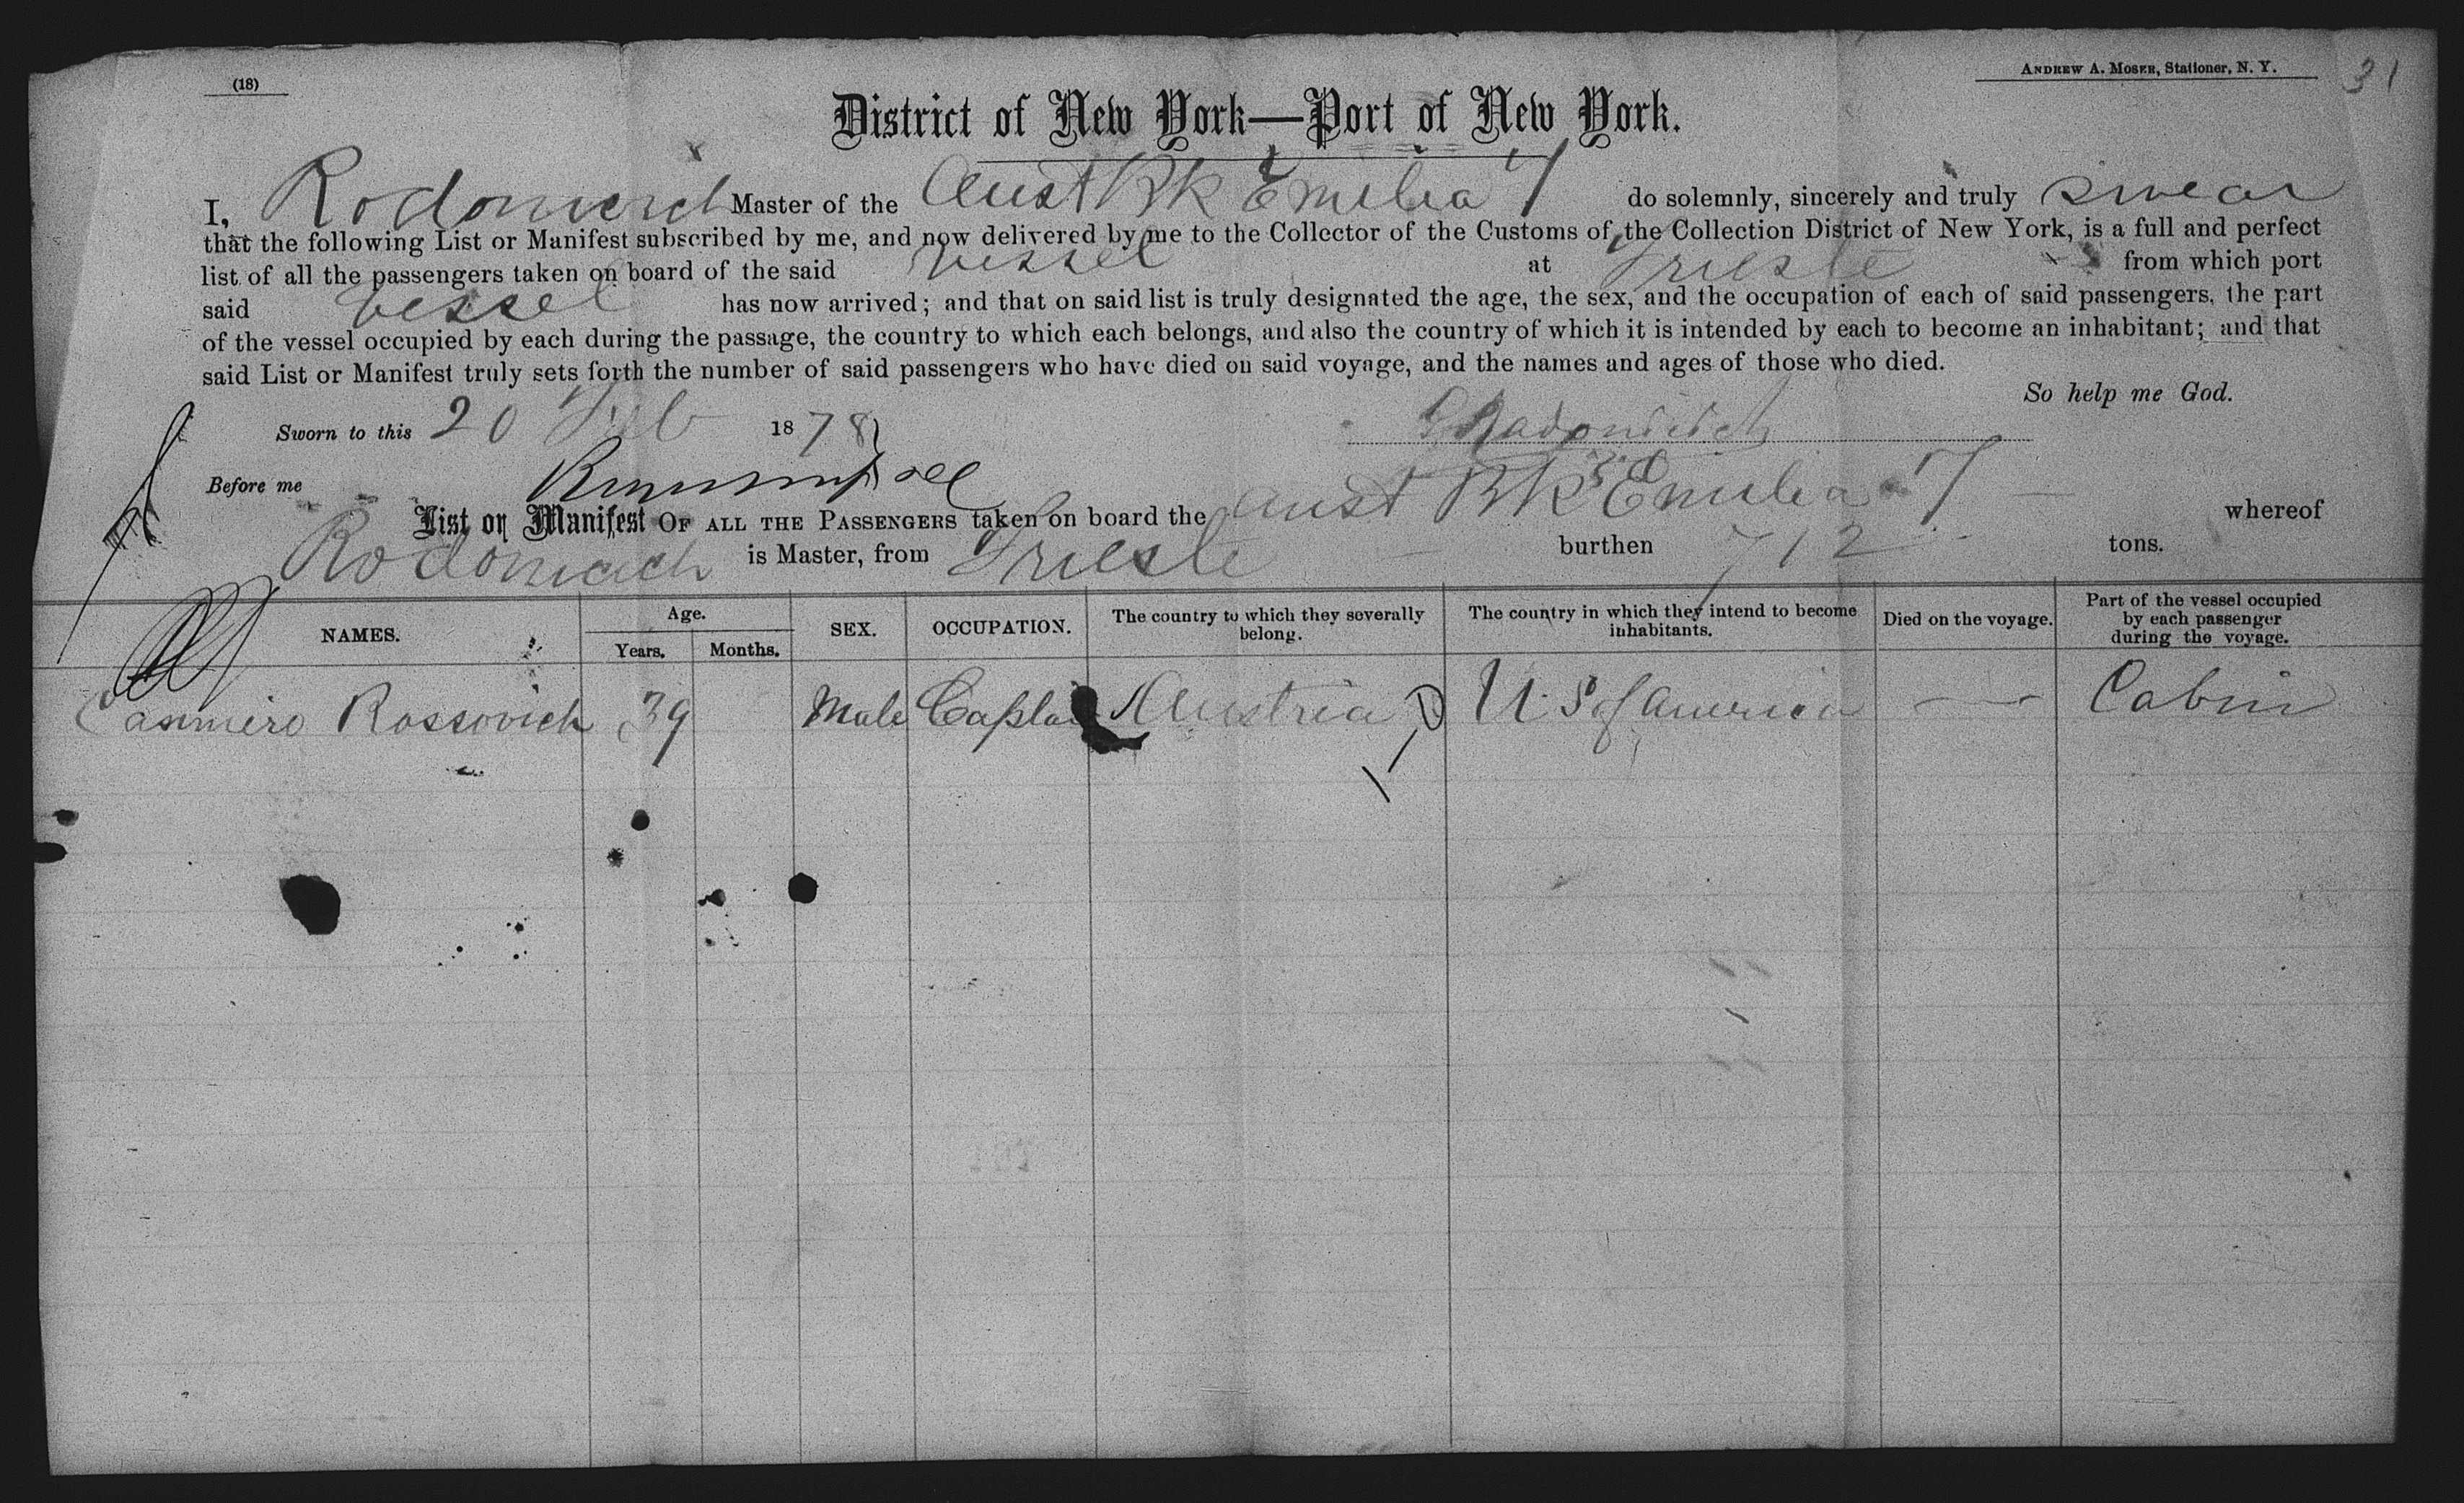 (18)
ANDREW A. MOSER, Stationer, N. Y.
31
District of New York—Port of New York.
I, Rodomerich Master of the Aust Bk Emilia T do solemnly, sincerely and truly swear
that the following List or Manifest subscribed by me, and now delivered by me to the Collector of the Customs of the Collection District of New York, is a full and perfect
list of all the passengers taken on board of the said vessel at Trieste from which port
said vessel has now arrived; and that on said list is truly designated the age, the sex, and the occupation of each of said passengers, the part
of the vessel occupied by each during the passage, the country to which each belongs, and also the country of which it is intended by each to become an inhabitant; and that
said List or Manifest truly sets forth the number of said passengers who have died on said voyage, and the names and ages of those who died.
So help me God.
Sworn to this 20 Feb 1878
Before me
List or Manifest OF ALL THE PASSENGERS taken on board the Aust Bk Emilia T whereof
is Master, from Trieste burthen 712 tons.
NAMES. Age. Years. Months. SEX. OCCUPATION. The country to which they severally belong. The country in which they intend to become inhabitants. Died on the voyage. Part of the vessel occupied by each passenger during the voyage.
Casimiro Rossovich 39 Male Captain Austria U. S of America — Cabin